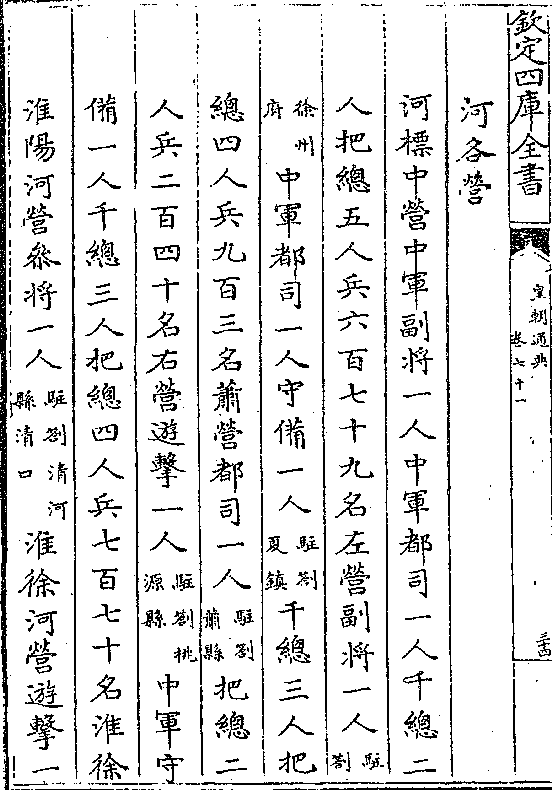 欽定四庫全書
皇朝通典
卷七十一
河各營
河標中營中軍副將一人中軍都司一人千總二
人把總五人兵六百七十九名左營副將一人駐劄
徐州府中軍都司一人守備一人駐劄夏鎮千總三人把
總四人兵九百三名蕭營都司一人駐劄蕭縣把總二
人兵二百四十名右營遊擊一人駐劄桃源縣中軍守
備一人千總三人把總四人兵七百七十名淮徐
淮陽河營叅將一人駐劄清河縣清口淮徐河營遊擊一